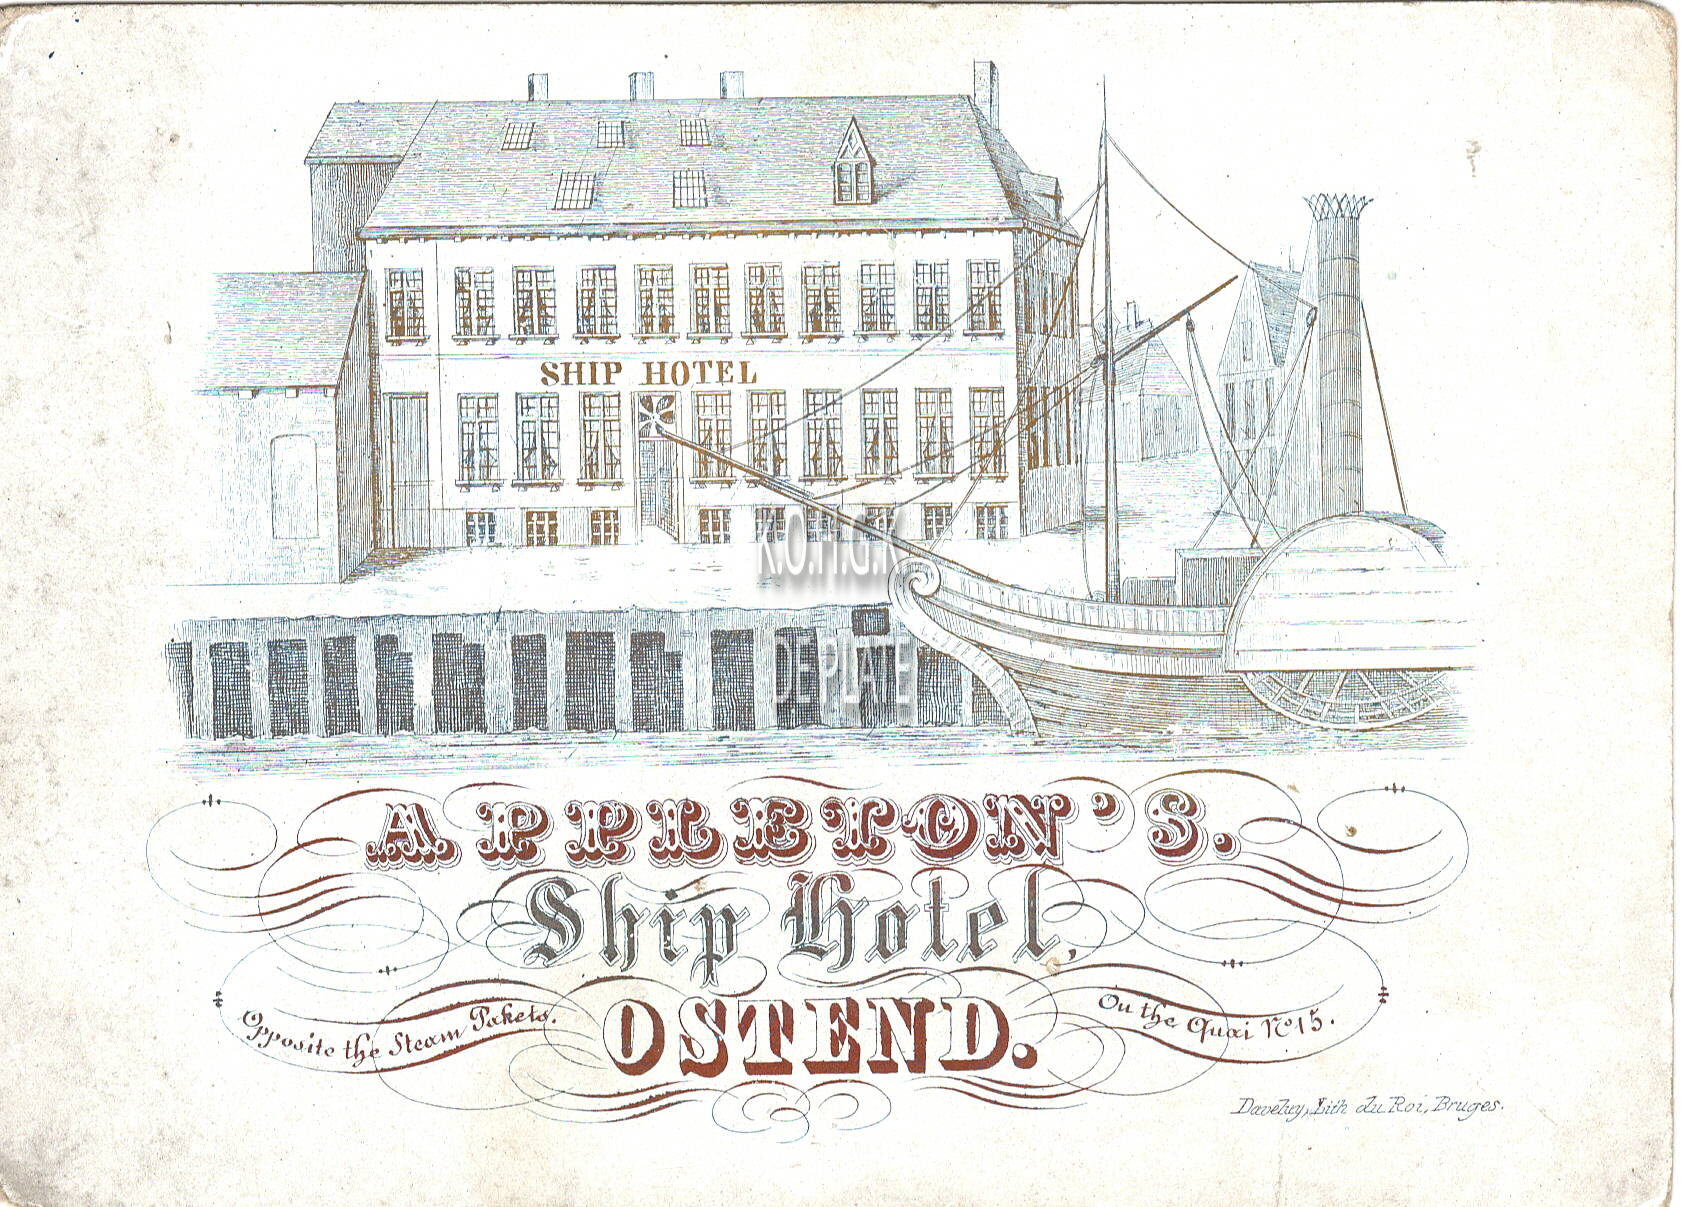 SHIP HOTEL
K.O.H.G.K
DE PLATE
APPLETON'S.
Ship Hotel,
OSTEND.
Opposite the Steam Pakets.
On the Quai No 15.
Daveluy, Lith du Roi, Bruges.